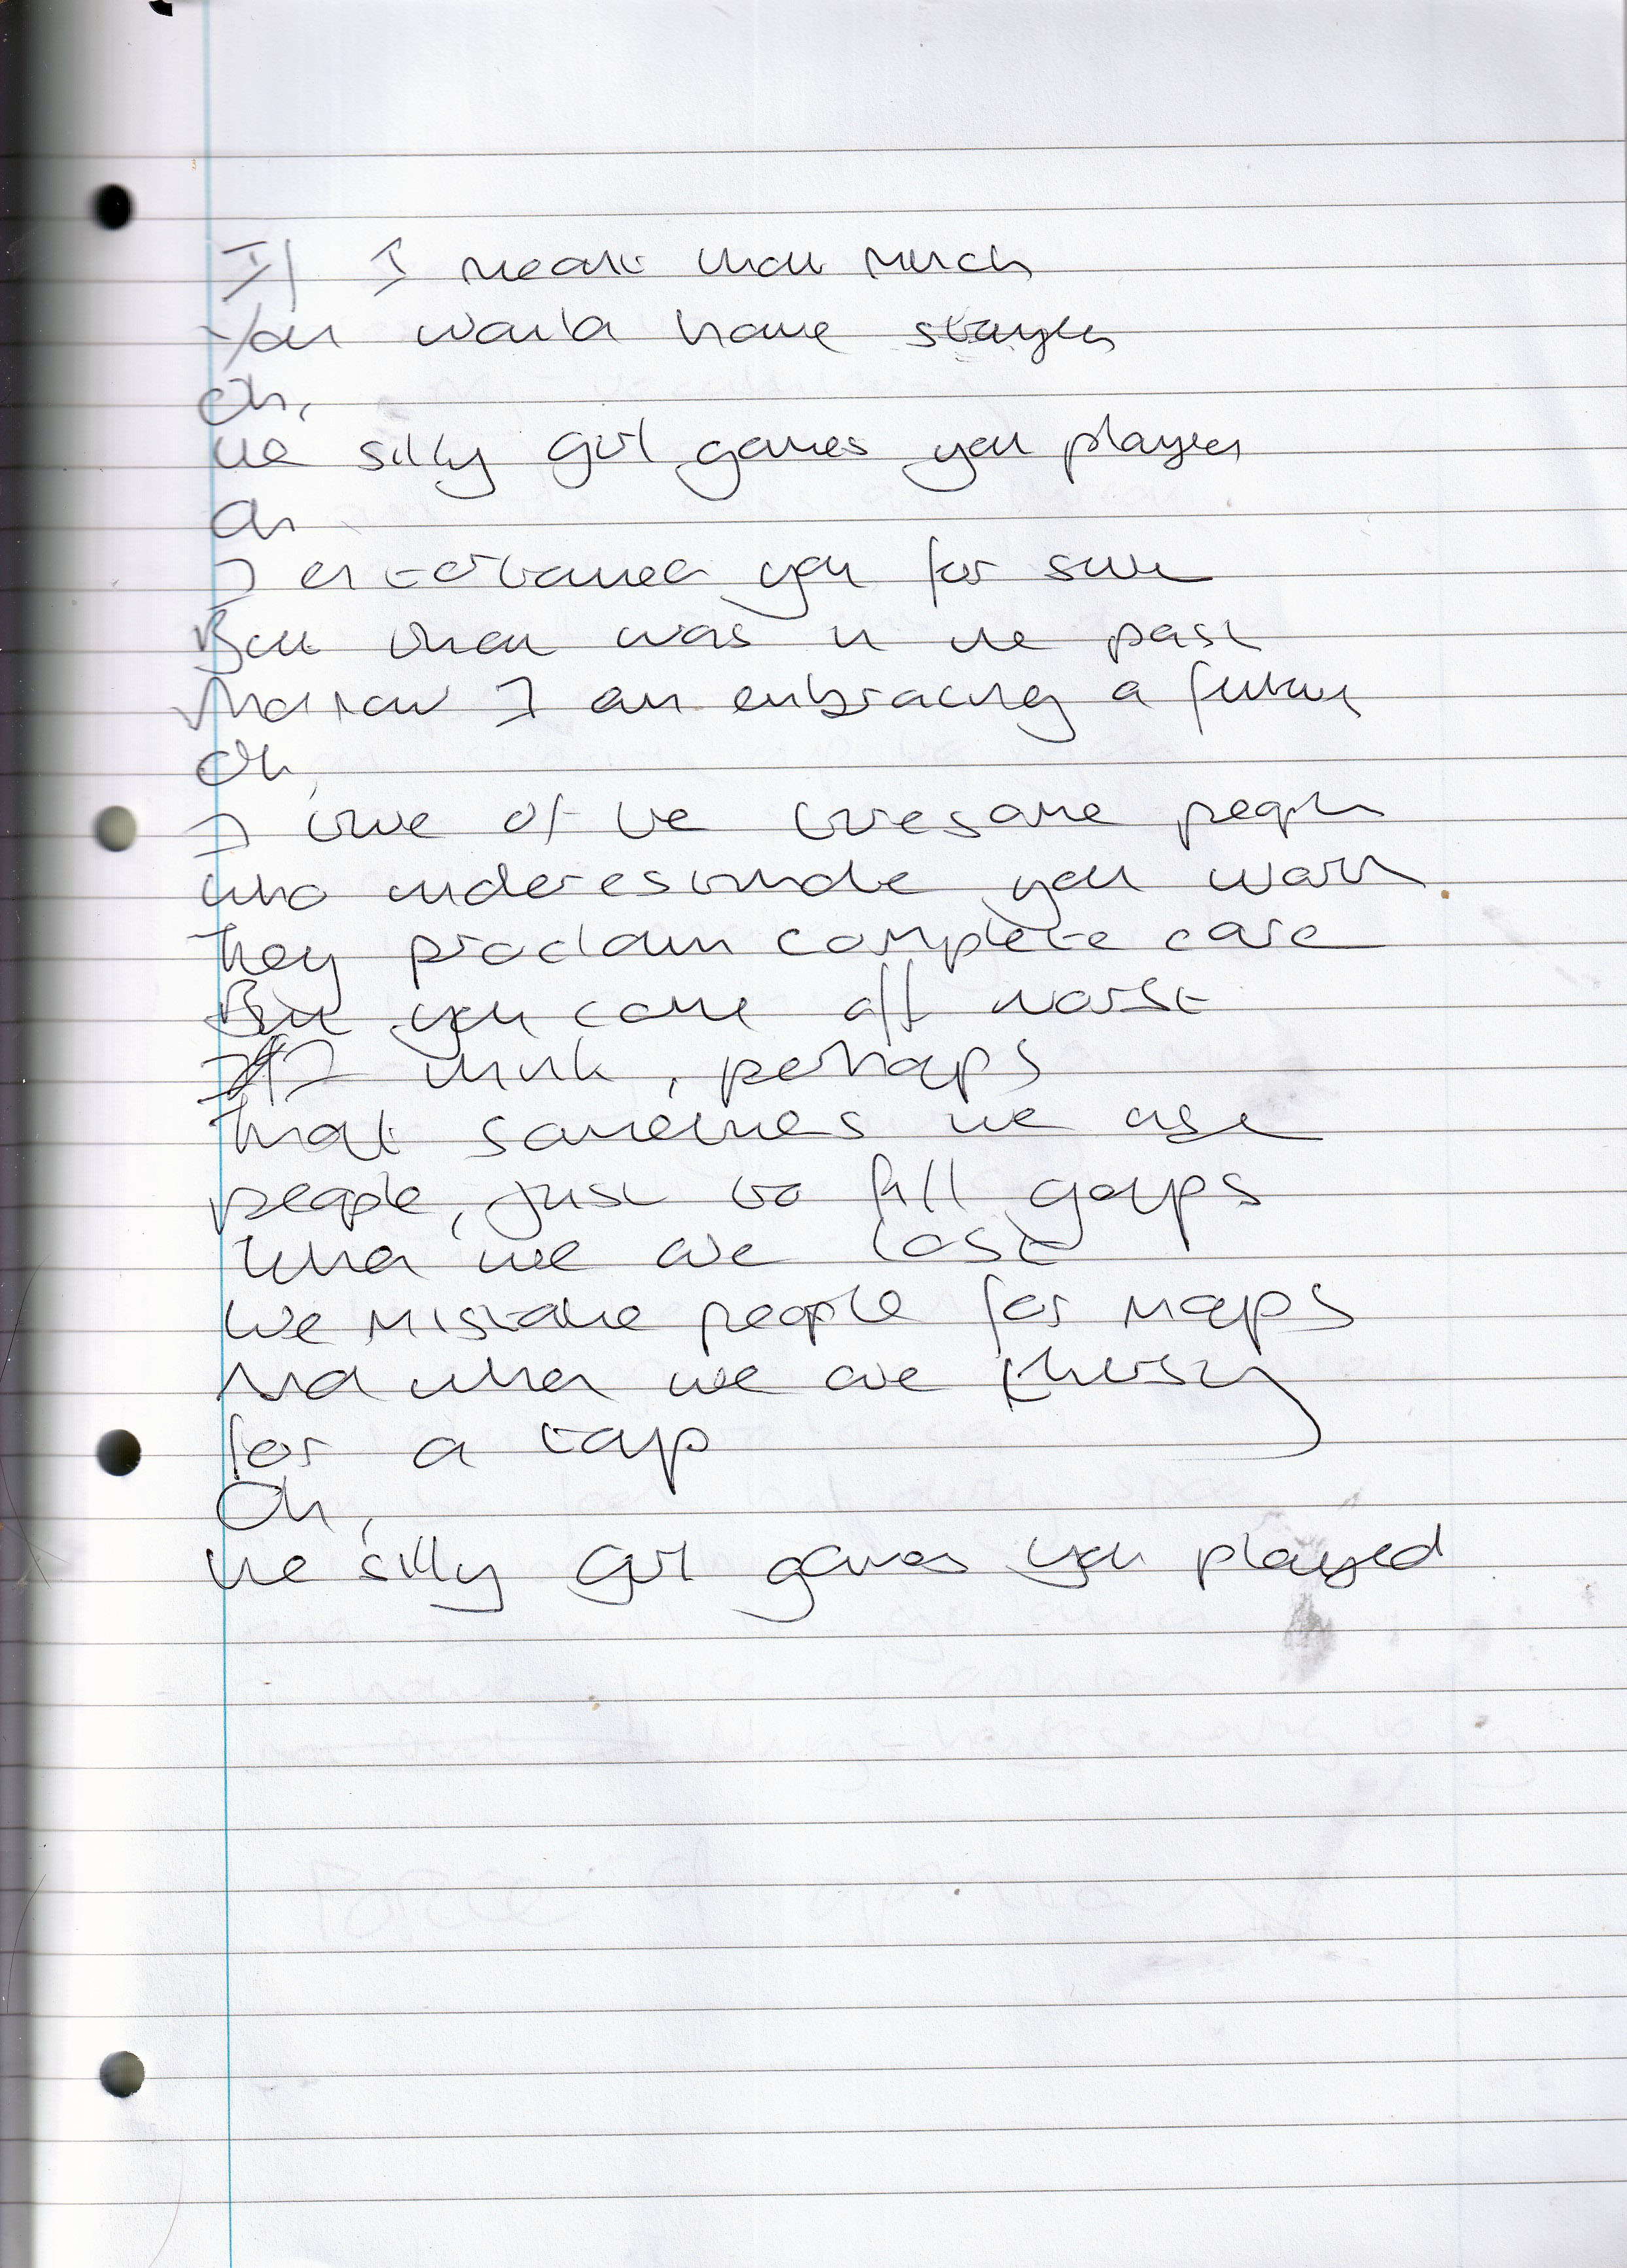 If I meant that much
You would have stayed
Oh,
the silly girl games you played
Oh
I entertained you for sure
But that was in the past
And now I am embracing a future
Oh,
I tire of the tiresome people
who underestimate your worth
They proclaim complete care
But you come off worst
I think, perhaps
That sometimes we use
people, just to fill gaps
When we are lost
We mistake people for maps
And when we are thirsty
for a tap
Oh,
the silly girl games you played